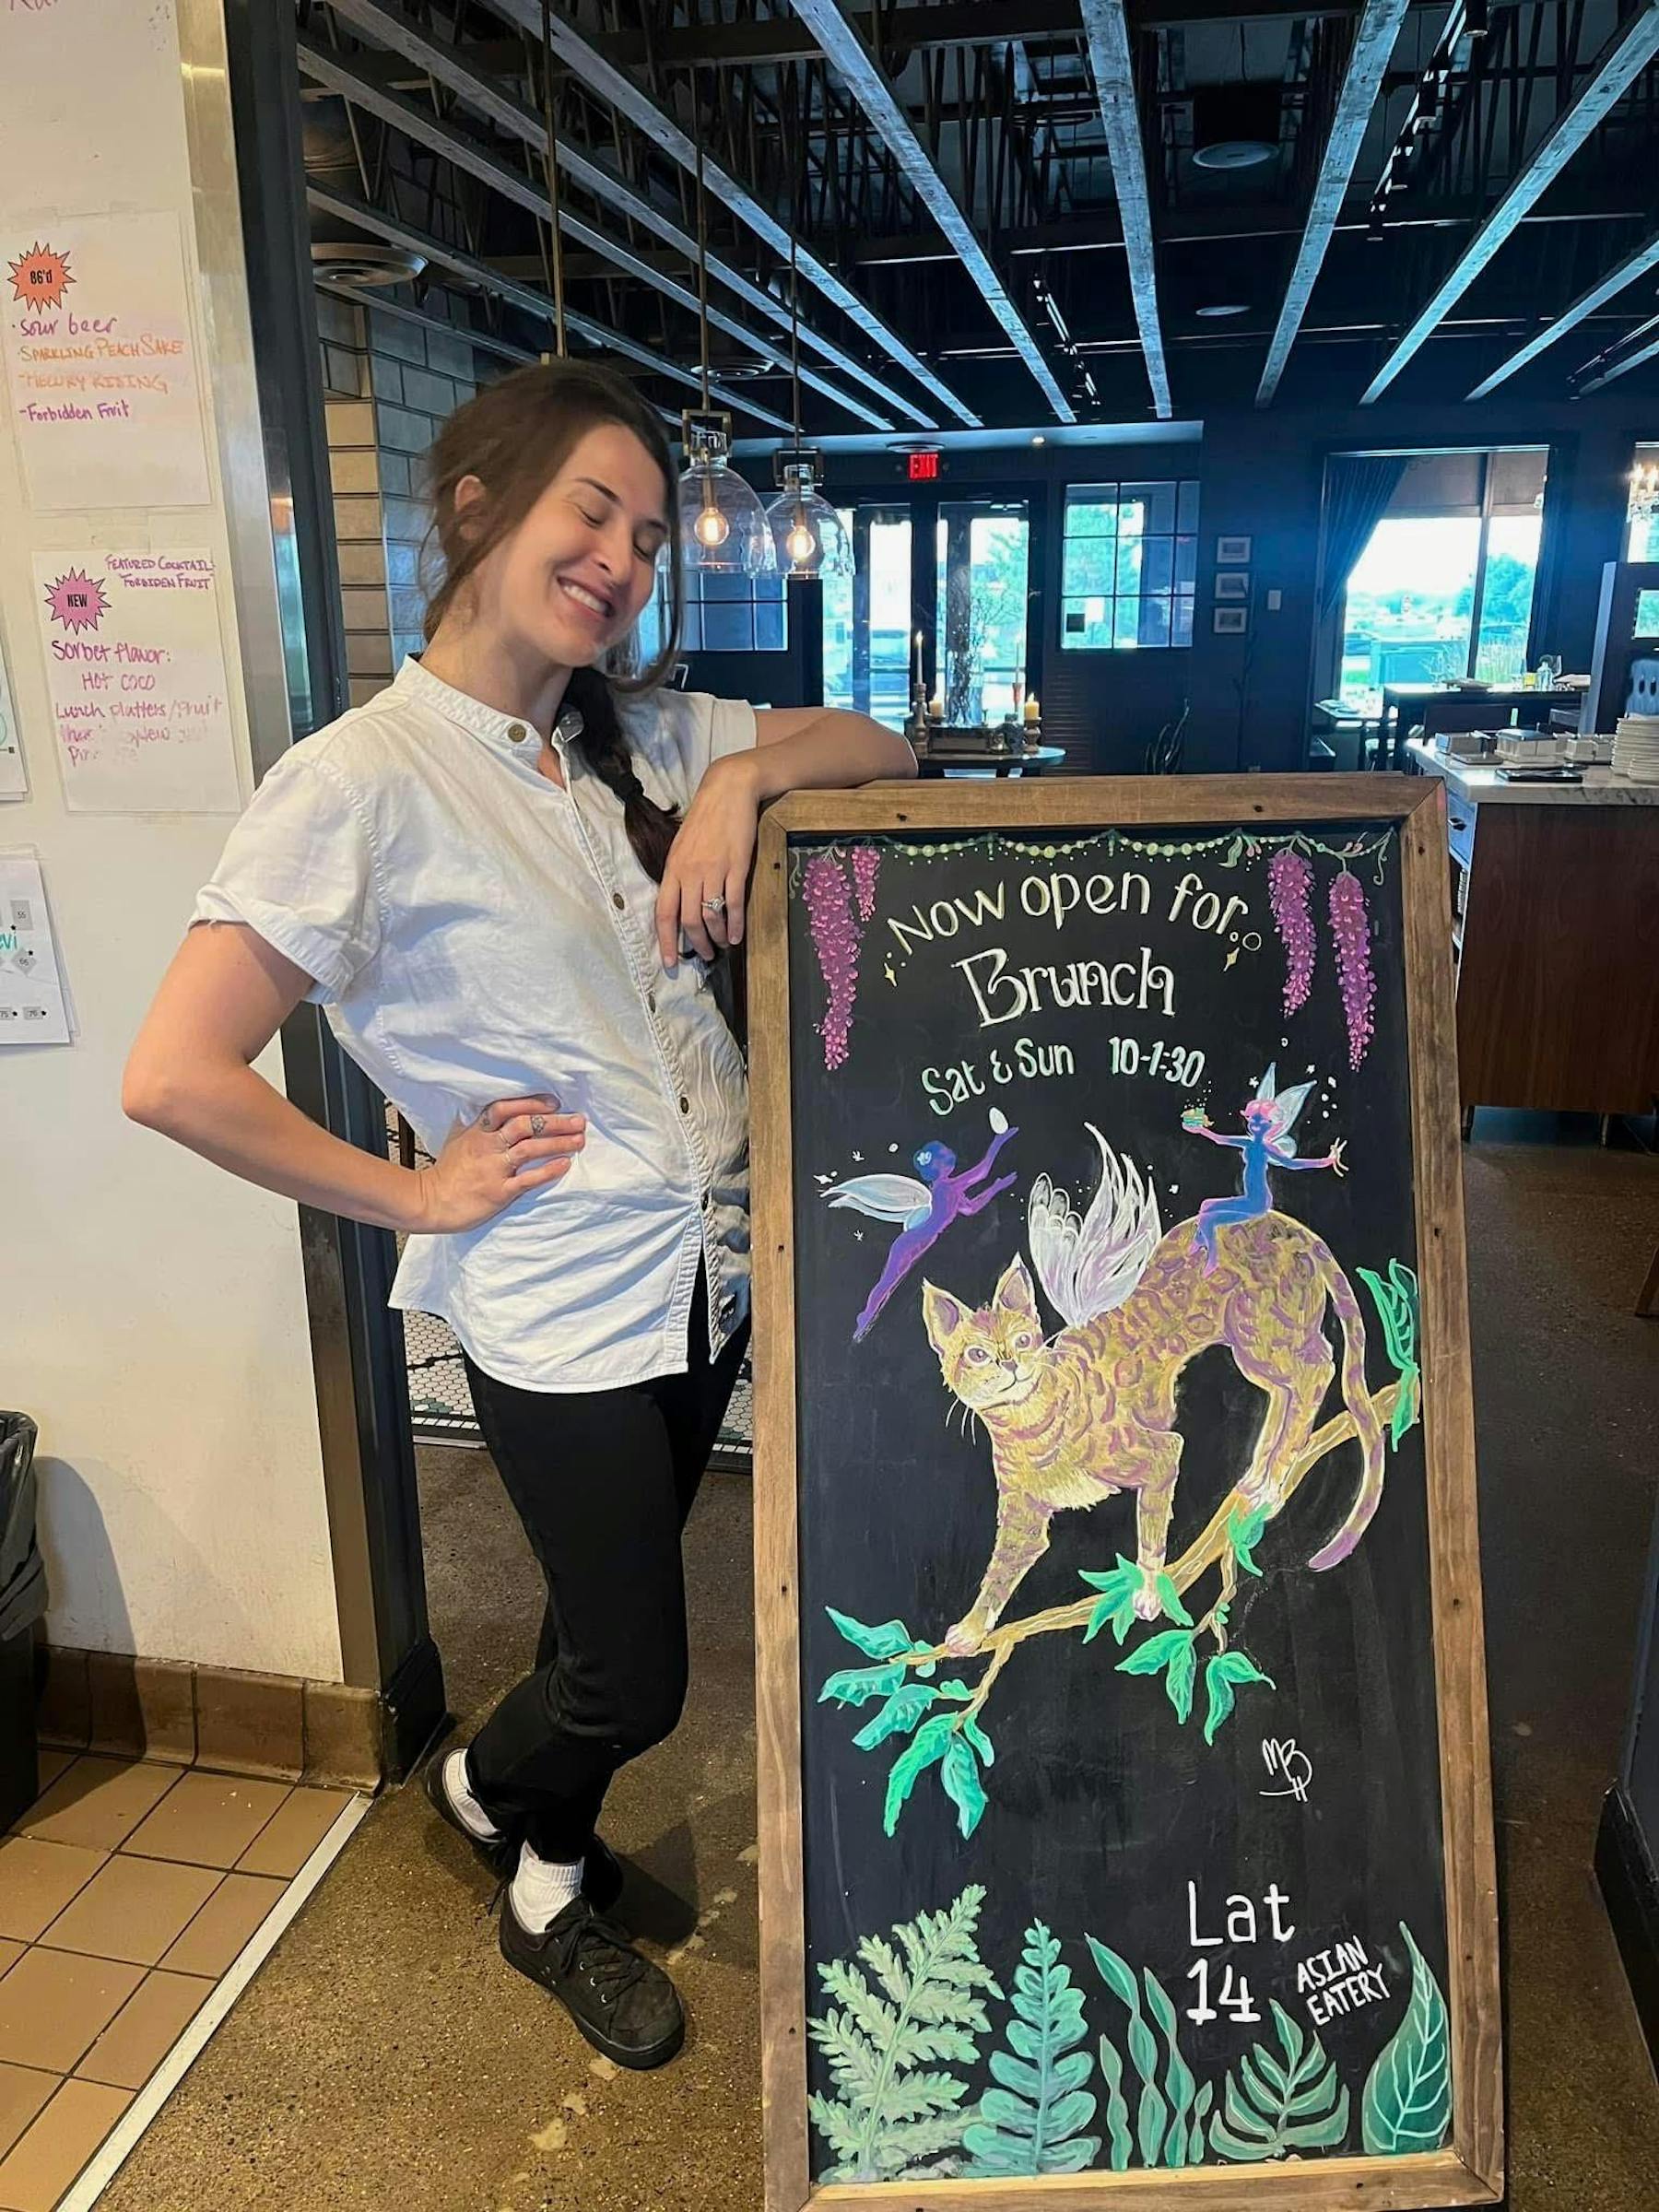 86'd
·sour beer
·SPARKLING PEACH SAKE
-MECURY RISING
-Forbidden Fruit
FEATURED COCKTAIL:
"FORBIDEN FRUIT"
NEW
Sorbet flavor:
HOT COCO
Lunch platters/
EXIT
Now open for
Brunch
Sat & Sun 10-1:30
MB
Lat
14
ASIAN
EATERY